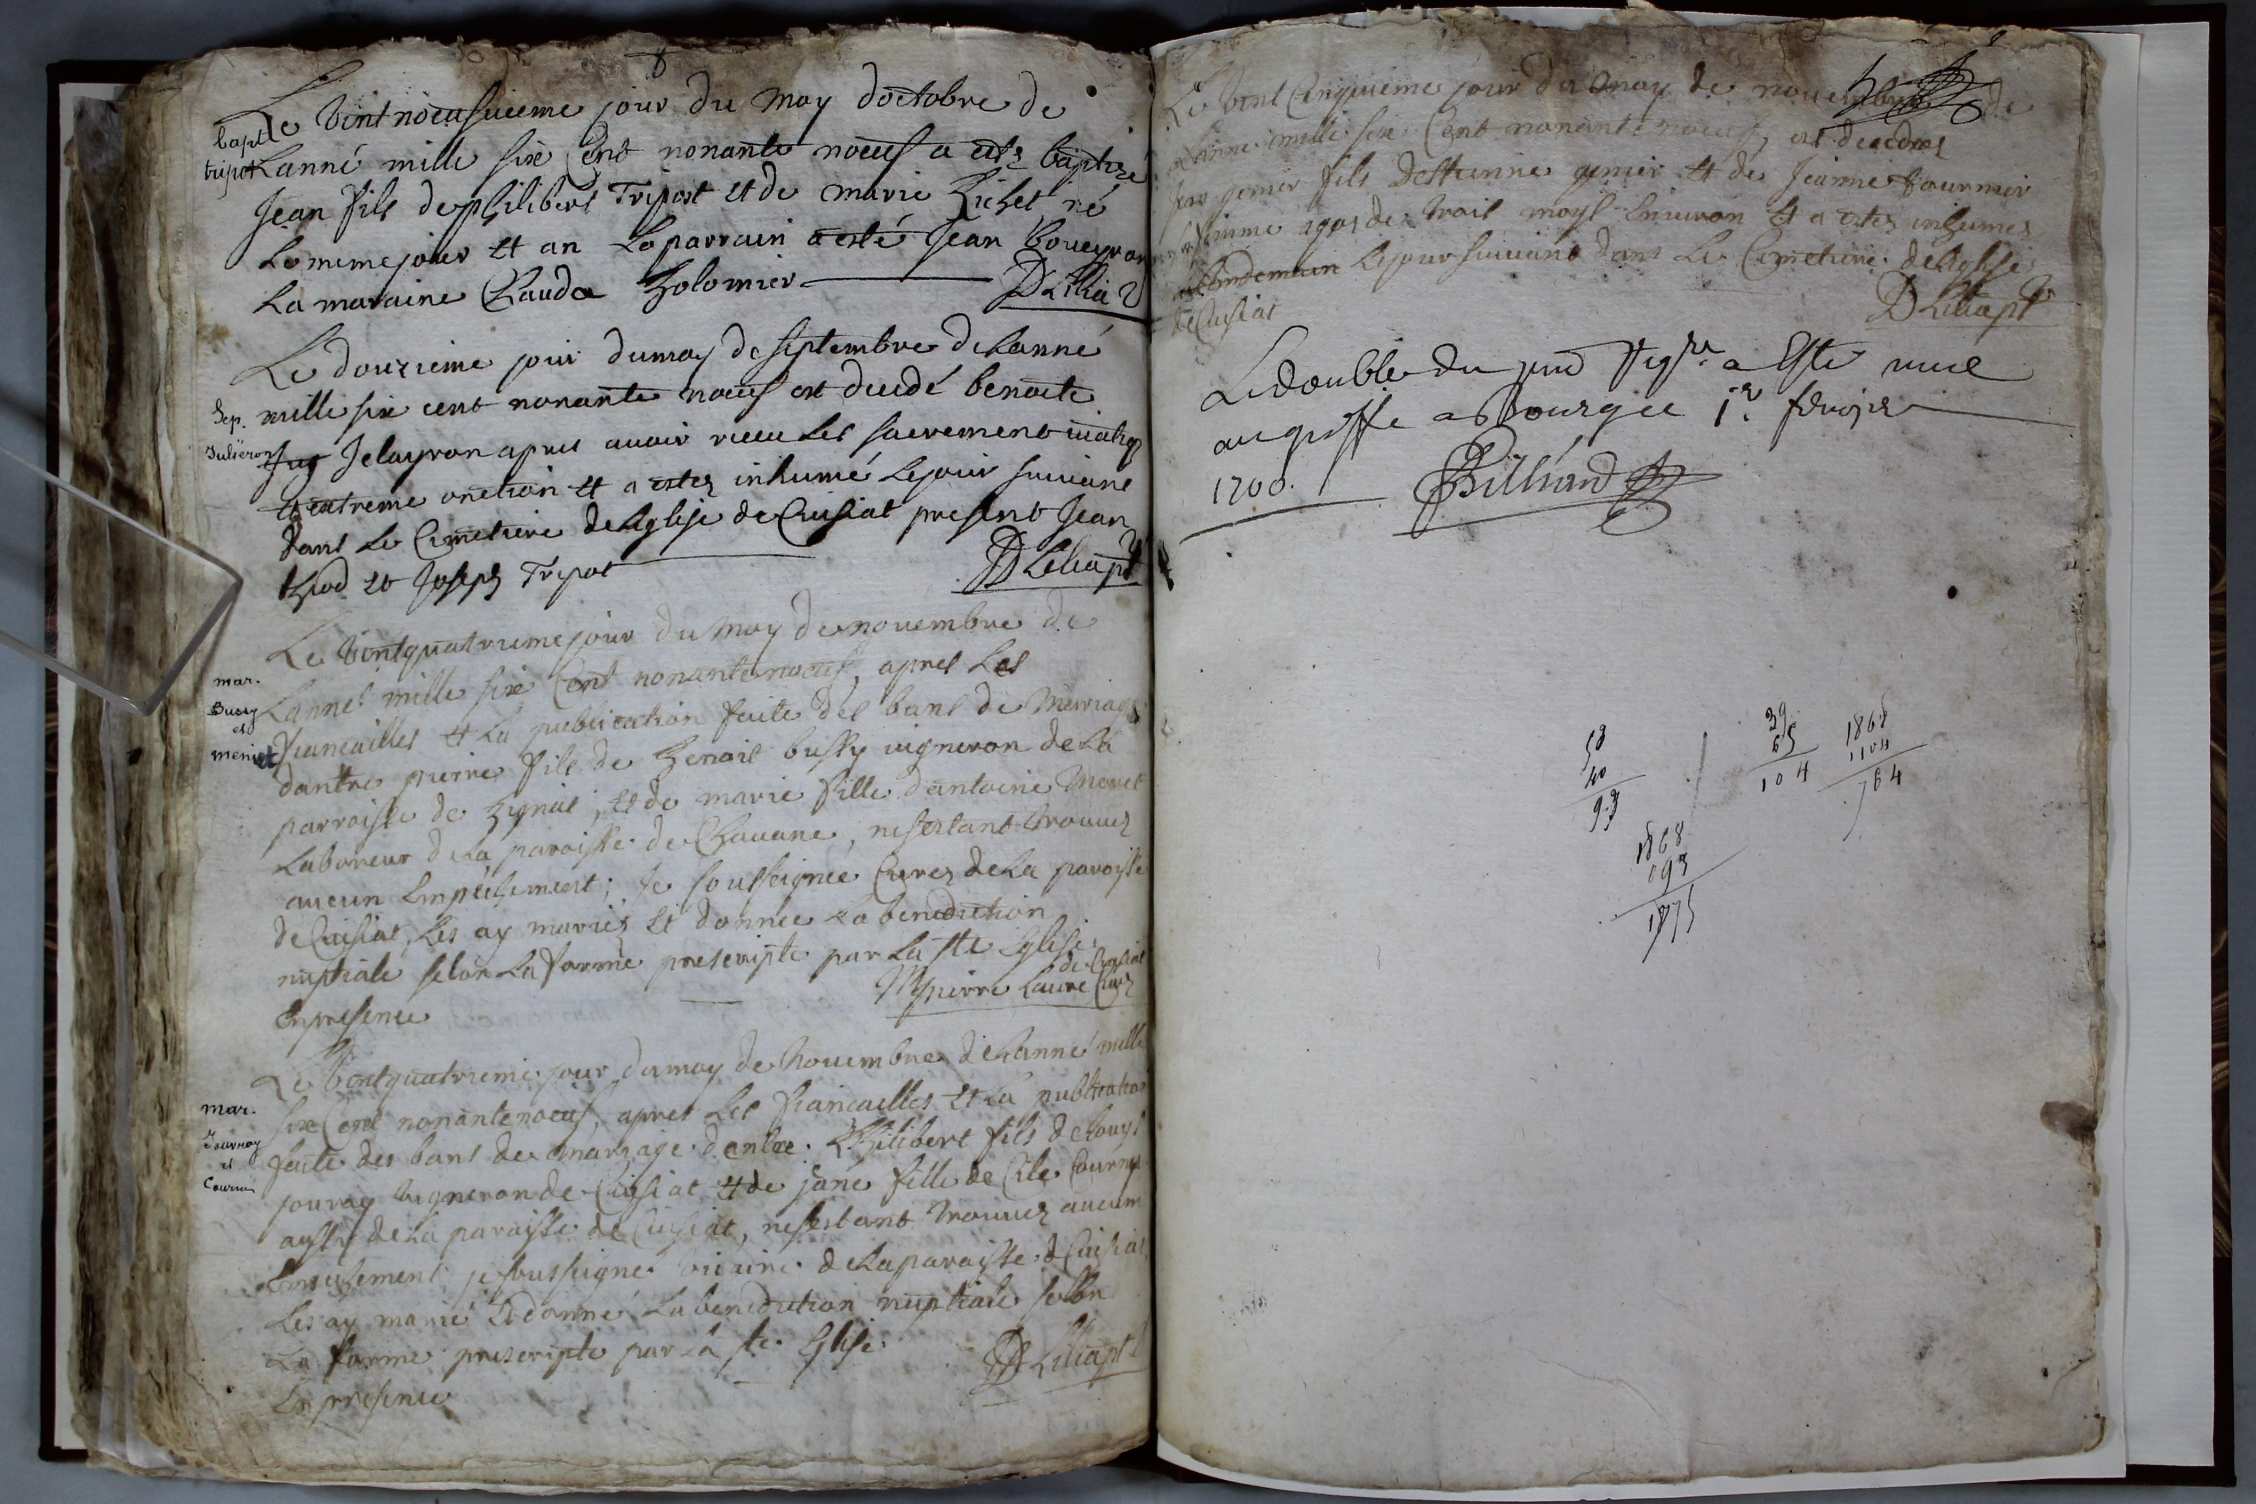 8
bapt
tripot
Le Vint noeufuieme jour du moy doctobre de
Lanné mille sixe Cent nonante noeuf a esté baptizé
Jean fils de philibert Tripot et de marie Richet né
Le meme jour et an Le parrain a esté Jean Boueyron
La maraine Clauda Tholomier D Lilliaz
Sep.
Julieron
Le douzieme jour du moy de septembre de Lanné
mille sixe cent nonante noeuf est decedé benoite
Jelayron apres avoir receu Les sacrement viatiq
et extreme onction et a estez inhumé Le jour suivant
dans Le Cimetiere de Leglise de Cuisiat present Jean
et Joseph Tripot D Lilliapt
mar.
Bussy
et
moniet
Le Vint quatrieme jour du moy de novembre de
Lanneé mille sixe Cent nonante noeuf, apres Les
fiancailles et La publication faite des bans de Merriage
dantre pierre fils de benoit bussy vigneron de La
parroisse de Trignat, et de marie fille dantoine Moniet
Laboureur de La paroisse de Chavane, ne sestant trouvez
aucun Empechement; Je soussignée Curez de La paroisse
de Cuisiat, Les ay mariéz et donnee La benediction
nuptiale selon La forme prescripte par La ste Eglise.
En presence
M pierre Laure Curez
de Cuisiat
mar.
Jouvray
et
Cournu
Le Vint quatrieme jour du moy de Novembre de Lanné mille
sixe Cent nonante noeuf, apres Les fiancailles et La publication
faite des bans de mariage dentre Philibert fils de Louys
jouvray vigneron de Cuisiat et de jane fille de Cle Cournu
aussy de La paroisse de Cuisiat, ne sestant trouvez aucun
Empechement je soussigne vicaire de La paroisse de Cuisiat
Les ay marié et donné La benediction nuptiale sellon
La forme prescripte par La ste Eglise.
En presence
D Lilliapt
Le Vint Cinquieme jour du moy de novembre de
Lanne mille sixe Cent nonante noeuf, est decedez
genier fils destienne genier et de Jeanne fournier
agas de trois moys Environ et a estez inhumez
Lendemain Le jour suivant dans Le Cimetiere de Leglise
de Cuisiat
D Lilliapt
Le double du pnt Regre a Esté mis
au greffe a Bourg ce 1er fevrier
1700.
Billiard
53
40
93
39
65
104
1868
1104
764
1868
093
1775